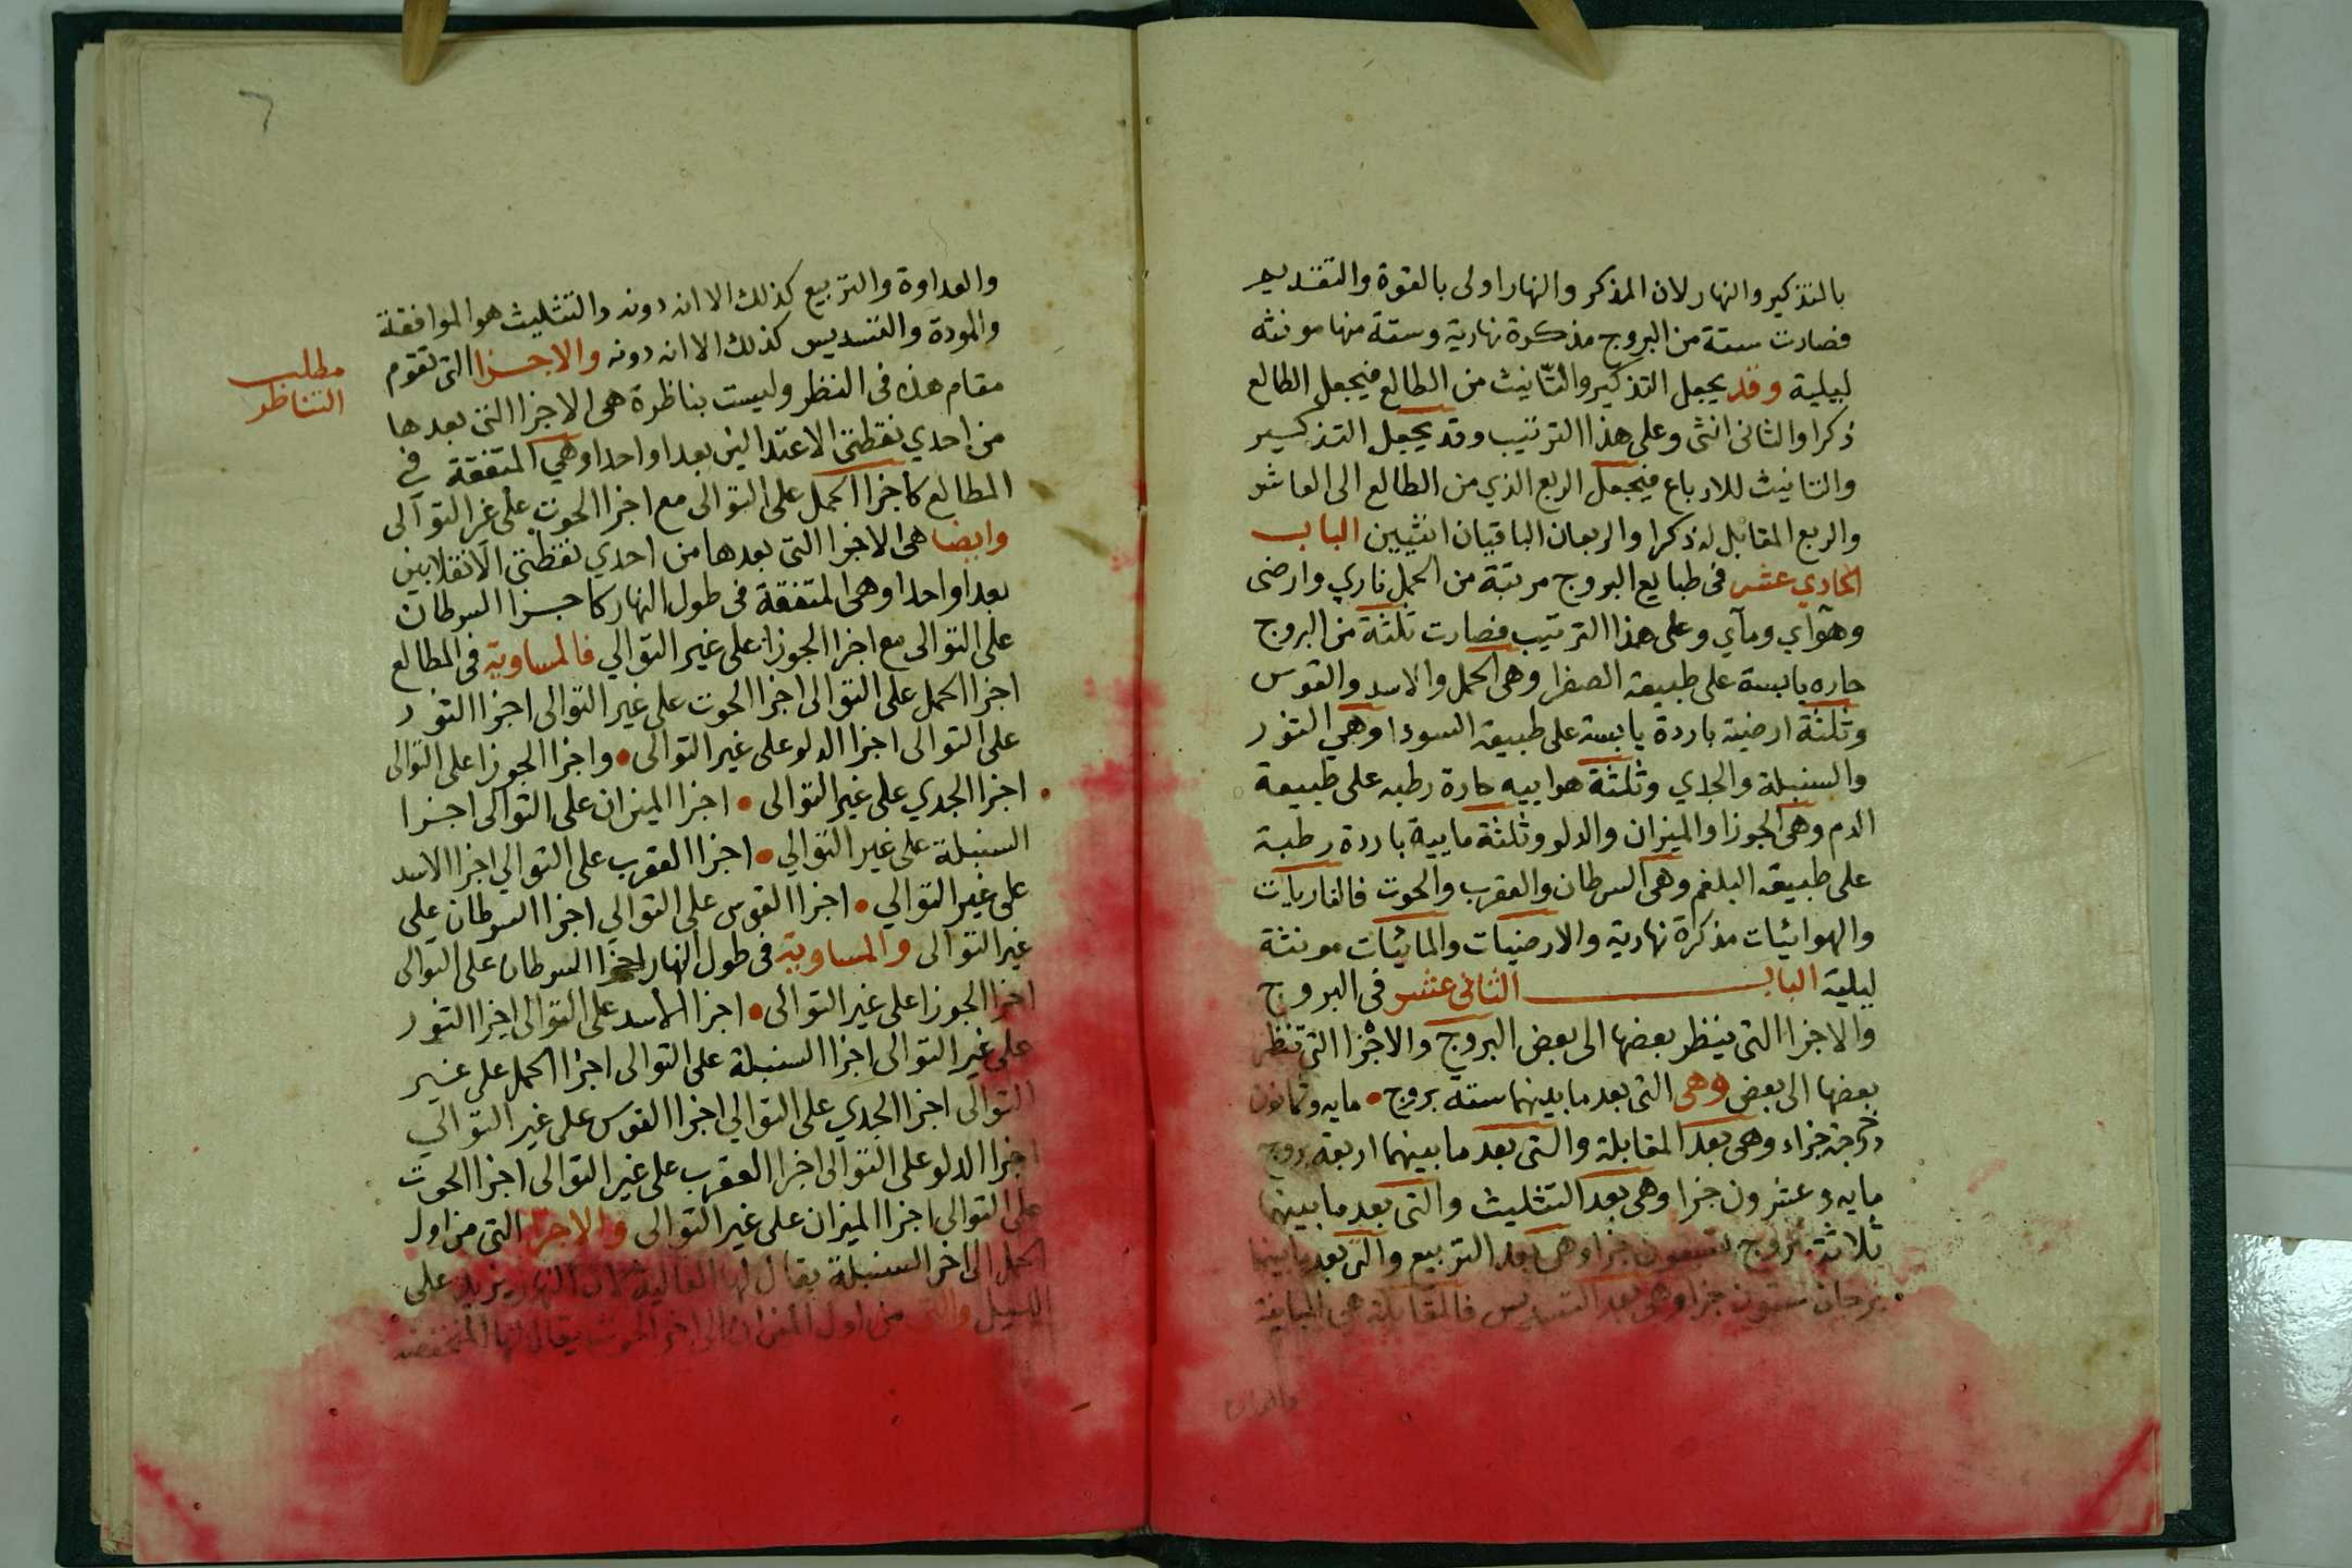 بالتذكير والنهار لان المذكر والنهار اولى بالقوة والتقديم
فصارت ستة من البروج مذكرة نهارية وستة منها مونثه
ليلية وقد يجعل التذكير والتّانيث من الطالع فيجعل الطالع
ذكرا والثانى انثى وعلى هذا الترتيب وقد يجعل التذكير
والتانيث للارباع فيجعل الربع الذي من الطالع الى العاشر
والربع المقابل له ذكرا والربعان الباقيان انثيين الباب
الحادي عشر فى طبايع البروج مرتبة من الحمل ناري وارضى
وهوآي ومآي وعلى هذا الترتيب فصارت ثلثة من البروج
حاره يابسة على طبيعة الصفرا وهى الحمل والاسد والقوس
وثلثة ارضية باردة يابسة على طبيعة السودا وهي الثور
والسنبلة والجدي وثلثة هوابيه حارة رطبه على طبيعة
الدم وهى الجوزا والميزان والدلو وثلثة مايية باردة رطبة
على طبيعة البلغم وهى السرطان والعقرب والحوت فالناريات
والهوائيات مذكرة نهارية والارضيات والمائيات مونثة
ليلية الباب الثانى عشر فى البروج
والاجزا التى ينظر بعضها الى بعض البروج والاجزا التى تنظر
بعضها الى بعض وهى التى بعد ما بينهما ستة بروج مايه وثمانون
درجة جزاء وهى بعد المقابلة والتى بعد ما بينهما اربعة بروج
مايه وعشرون جزا وهى بعد التثليث والتى بعد ما بينهما
ثلاثة بروج تسعون جزاء وهى بعد التربيع والتى بعد ما بينهما
برجان ستون جزا وهى بعد التسديس فالمقابلة هى المباينة
والعداوة
والعداوة والتربيع كذلك الا انه دونه والتثليث هو الموافقة
والمودة والتسديس كذلك الا انه دونه والاجزا التى تقوم
مقام هذه فى النظر وليست بناظرة هى الاجزا التى بعدها
من احدي نقطتى الاعتدالين بعدا واحدا وهي المتفقة في
المطالع كاجزا الحمل على التوالى مع اجزا الحوت على غر التوآلى
وايضا هى الاجزا التى بعدها من احدي نقطتى الانقلابين
بعدا واحدا وهى المتفقة فى طول النهار كاجزا السرطان
على التوالى مع اجزا الجوزا على غير التوالي فالمساوية فى المطالع
اجزا الحمل على التوالى اجزا الحوت على غير التوالى اجزا الثور
على التوالى اجزا الدلو على غير التوالى واجزا الجوزا على التوالى
اجزا الجدي على غير التوالى اجزا الميزان على التوالى اجزا
السنبلة على غير التوالي اجزا العقرب على التوالي اجزا الاسد
على غير التوالي اجزا القوس على التوالي اجزا السرطان على
غير التوالى والمساوية فى طول النهار اجزا السرطان على التوالى
اجزا الجوزا على غير التوالى اجزا الاسد على التوالى اجزا الثور
على غير التوالى اجزا السنبلة على التوالى اجزا الحمل على غير
التوالى اجزا الجدي على التوالي اجزا القوس على غير التوالي
اجزا الدلو على التوالى اجزا العقرب على غير التوالى اجزا الحوت
على التوالى اجزا الميزان على غير التوالى والاجزا التى من اول
الحمل الى اخر السنبلة يقال لها العالية لان النهار يزيد على
الليل والتى من اول الميزان الى اخر الحوت يقال لها المنخفضه
مطلب
التناظر
٦